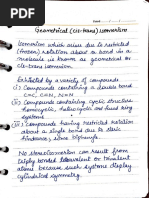 Geometrical (cis-trans) isomerism
Isomerism which arise due to restricted
(frozen) rotation about a bond in a
molecule is known as geometrical or
cis-trans isomerism.
Exhibited by a variety of compounds
(i) Compounds containing a double bond
(ii) Compounds containing cyclic structure
homocyclic, heterocyclic and fused ring
systems.
(iii) Compounds having restricted rotation
about a single bond due to steric
No stereoisomerism can result from
triply bonded, tetravalent or trivalent
atoms because such systems display
cylindrical symmetry.